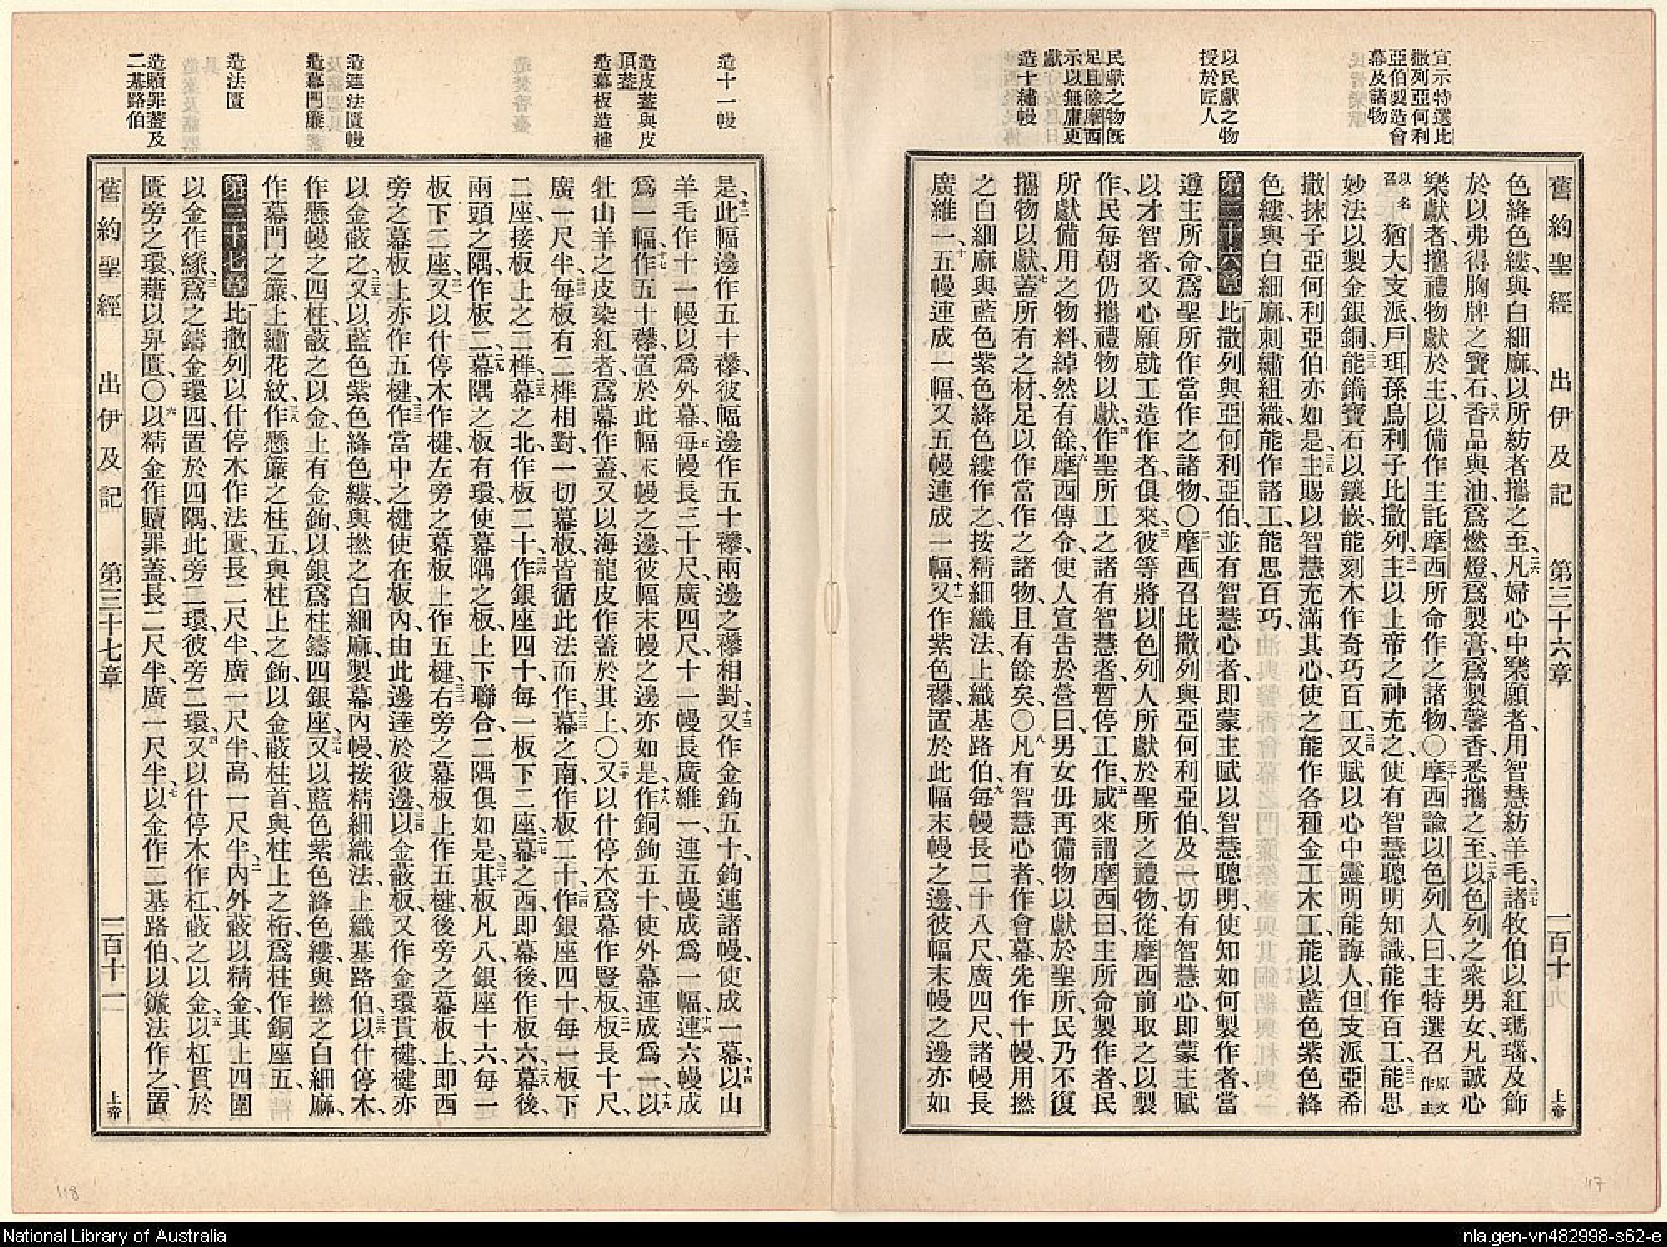 宣示特選比
撒列亞何利
亞伯製造會
幕及諸物
以民獻之物
授於匠人
民獻之物旣
足且餘摩西
示以無庸更
獻
造十繡幔
舊約聖經 出伊及記 第三十六章 一百十九 上帝
色絳色縷與白細麻以所紡者攜之至凡婦心中樂願者用智慧紡羊毛諸牧伯以紅瑪瑙及飾
於以弗得胸牌之寶石香品與油爲燃燈爲製膏爲製馨香悉攜之至以色列之衆男女凡誠心
樂獻者攜禮物獻於主以備作主託摩西所命作之諸物〇摩西諭以色列人曰主特選召原文作主
以名召猶大支派戶珥孫烏利子比撒列主以上帝之神充之使有智慧聰明知識能作百工能思
妙法以製金銀銅能鐫寶石以鑲嵌能刻木作奇巧百工又賦以心中靈明能誨人但支派亞希
撒抹子亞何利亞伯亦如是主賜以智慧充滿其心使之能作各種金工木工能以藍色紫色絳
色縷與白細麻刺繡組織能作諸工能思百巧
第三十六章 比撒列與亞何利亞伯並有智慧心者卽蒙主賦以智慧聰明使知如何製作者當
遵主所命爲聖所作當作之諸物〇摩西召比撒列與亞何利亞伯及一切有智慧心卽蒙主賦
以才智者又心願就工造作者俱來彼等將以色列人所獻於聖所之禮物從摩西前取之以製
作民每朝仍攜禮物以獻作聖所工之諸有智慧者暫停工作咸來謂摩西曰主所命製作者民
所獻備用之物料綽然有餘摩西傳令使人宣告於營曰男女毋再備物以獻於聖所民乃不復
攜物以獻蓋所有之材足以作當作之諸物且有餘矣〇凡有智慧心者作會幕先作十幔用撚
之白細麻與藍色紫色絳色縷作之按精細織法上織基路伯每幔長二十八尺廣四尺諸幔長
廣維一五幔連成一幅又五幔連成一幅又作紫色襻置於此幅末幔之邊彼幅末幔之邊亦如
造十一幔
造皮蓋與皮
頂蓋
造幕板造楗
造遮法匱幔
造幕門簾
造法匱
造贖罪蓋及
二基路伯
是此幅邊作五十襻彼幅邊作五十襻兩邊之襻相對又作金鉤五十鉤連諸幔使成一幕以山
羊毛作十一幔以爲外幕每幔長三十尺廣四尺十一幔長廣維一連五幔成爲一幅連六幔成
爲一幅作五十襻置於此幅末幔之邊彼幅末幔之邊亦如是作銅鉤五十使外幕連成爲一以
牡山羊之皮染紅者爲幕作蓋又以海龍皮作蓋於其上〇又以什停木爲幕作豎板板長十尺
廣一尺半每板有二榫相對一切幕板皆循此法而作幕之南作板二十作銀座四十每一板下
二座接板上之二榫幕之北作板二十作銀座四十每一板下二座幕之西卽幕後作板六幕後
兩頭之隅作板二幕隅之板有環使幕隅之板上下聯合二隅俱如是其板凡八銀座十六每一
板下二座又以什停木作楗左旁之幕板上作五楗右旁之幕板上作五楗後旁之幕板上卽西
旁之幕板上亦作五楗作當中之楗使在板內由此邊達於彼邊以金蔽板又作金環貫楗楗亦
以金蔽之又以藍色紫色絳色縷與撚之白細麻製幕內幔按精細織法上織基路伯以什停木
作懸幔之四柱蔽之以金上有金鉤以銀爲柱鑄四銀座又以藍色紫色絳色縷與撚之白細麻
作幕門之簾上繡花紋作懸簾之柱五與柱上之鉤以金蔽柱首與柱上之桁爲柱作銅座五
第三十七章 比撒列以什停木作法匱長二尺半廣一尺半高一尺半內外蔽以精金其上四圍
以金作緣爲之鑄金環四置於四隅此旁二環彼旁二環又以什停木作杠蔽之以金以杠貫於
匱旁之環藉以舁匱〇以精金作贖罪蓋長二尺半廣一尺半以金作二基路伯以鏇法作之置
舊約聖經 出伊及記 第三十七章 一百十一 上帝
118
117
National Library of Australia
nla.gen-vn482998-s62-e